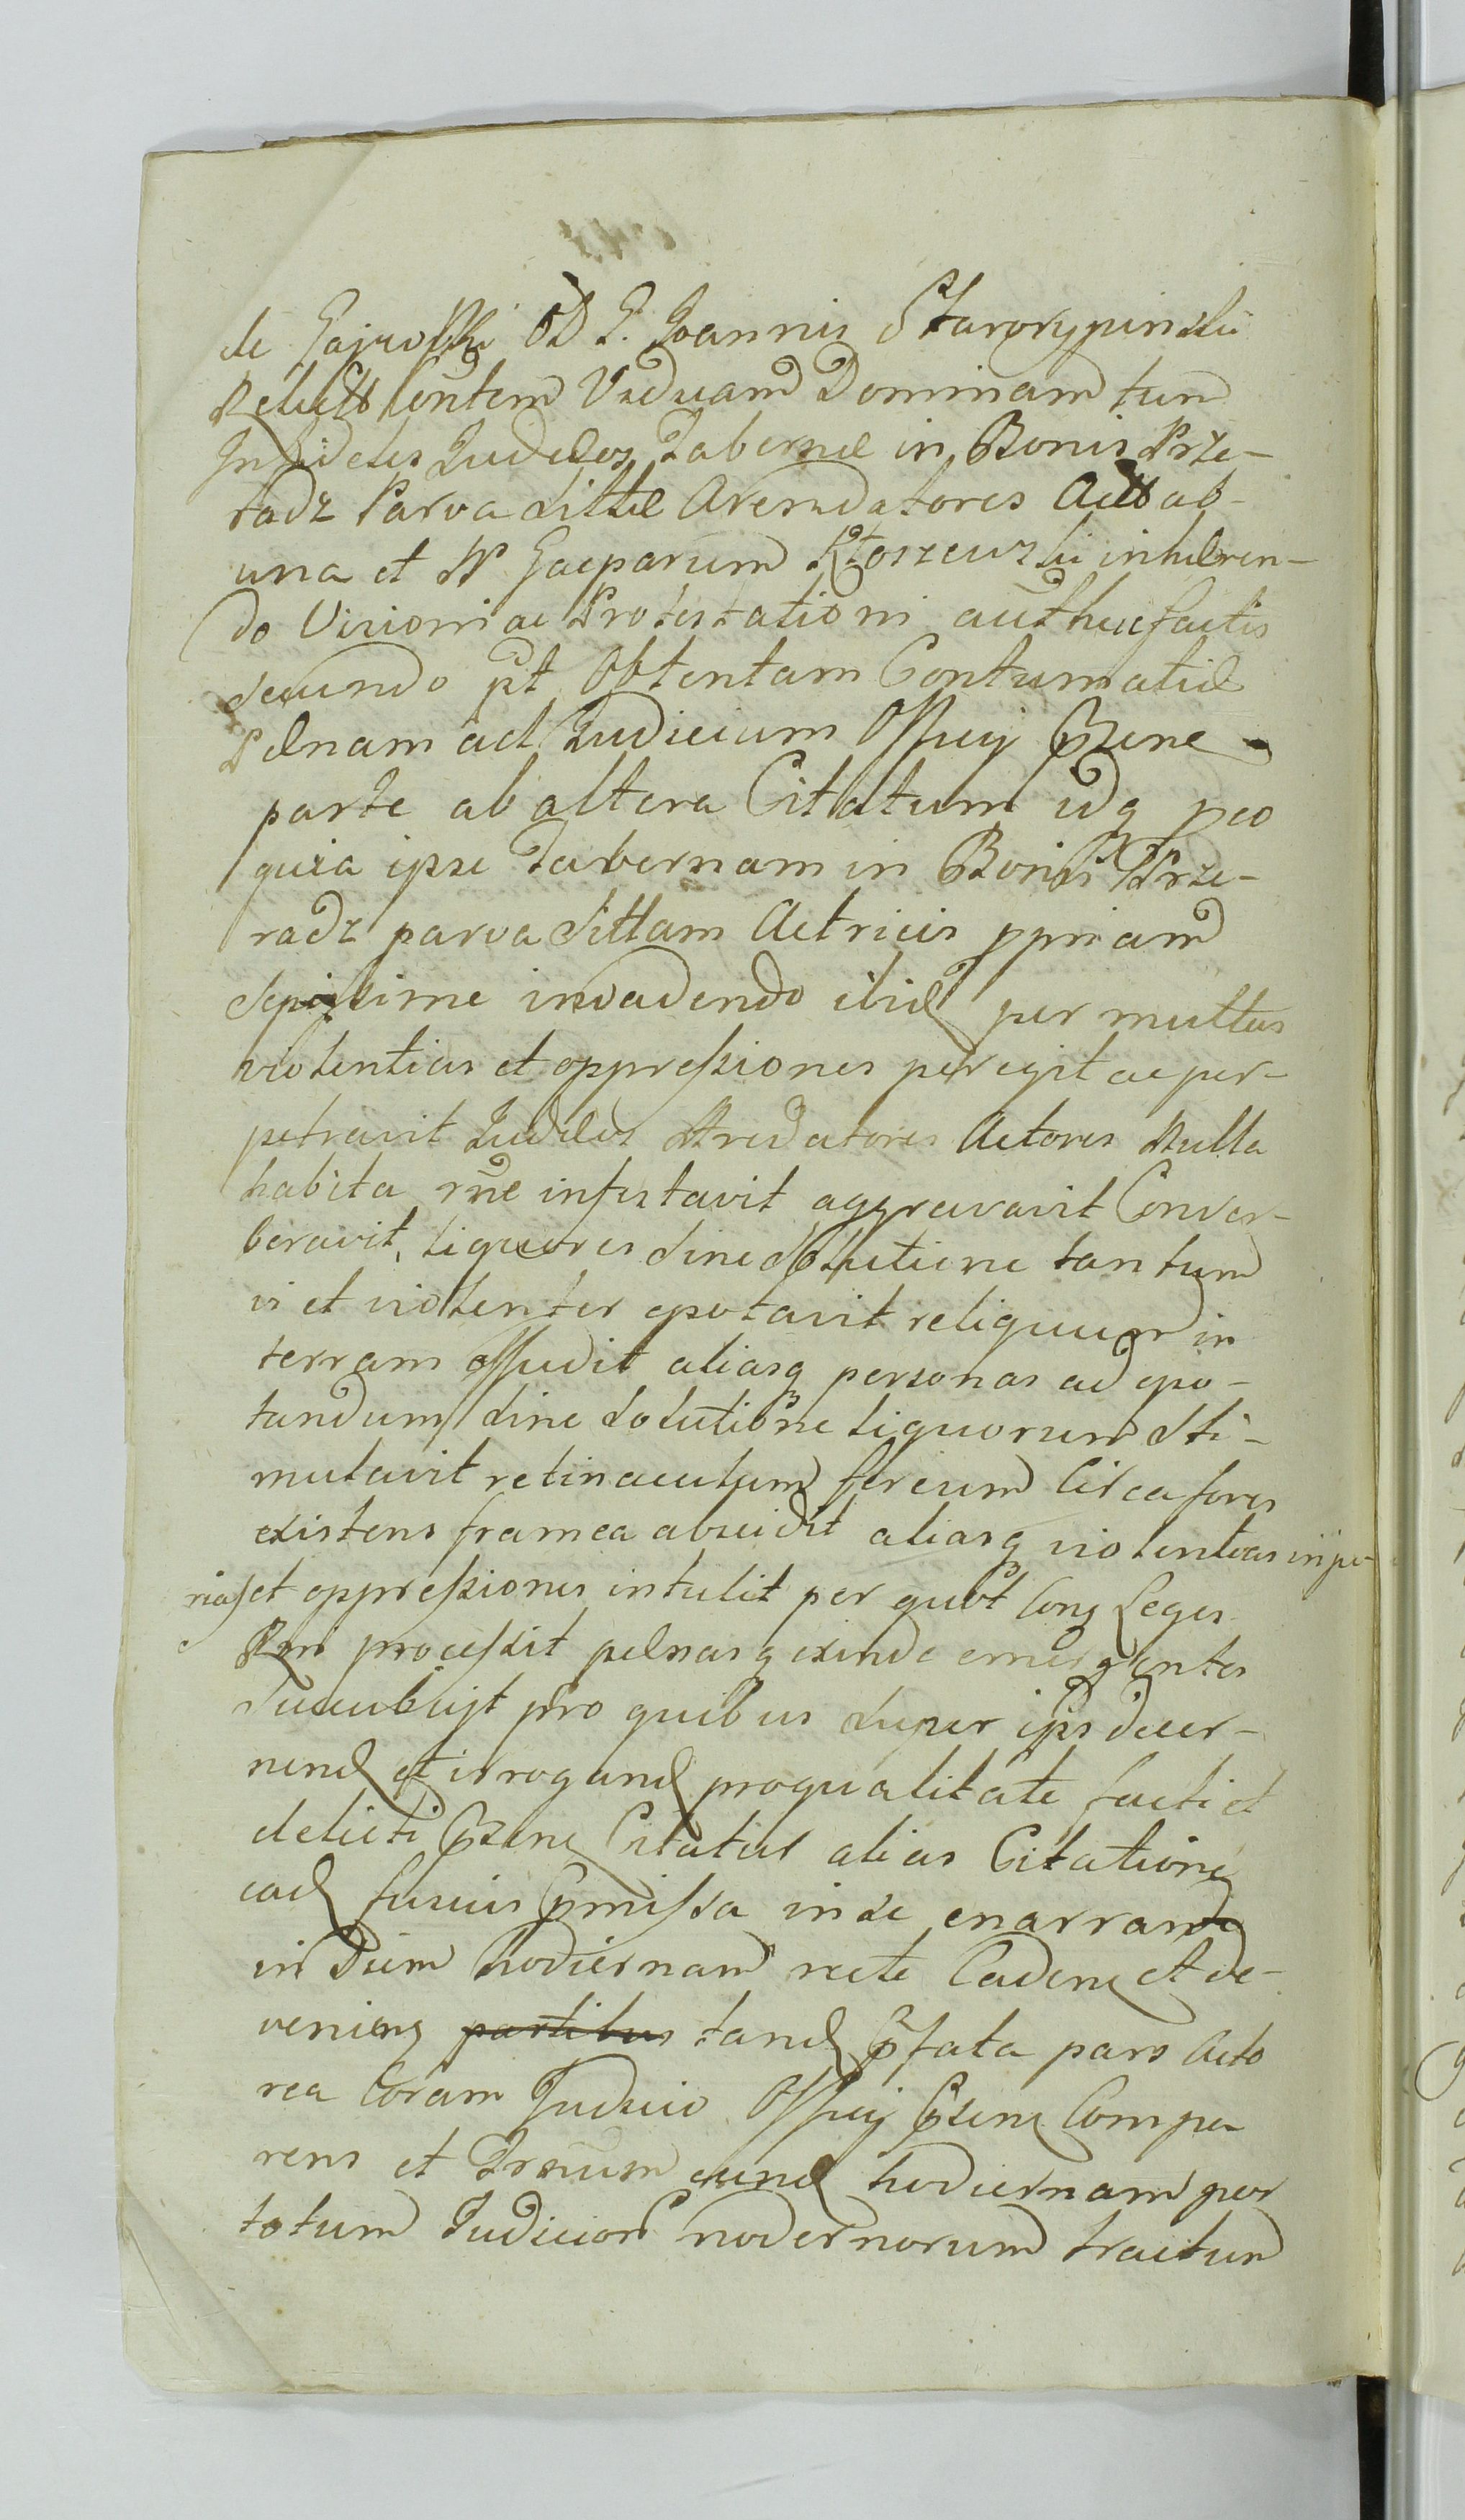 de Gajewski OD G. Joannis Starorypinski
Relictt Contem Viduam Dominam tum
Infideles Judæos Tabernæ in Bonis Prze-
radz Parva Sittæ Arendatores Actt ab
una et N Gasparum Kłoszewski inhæren-
do Visioni ac Protestationi authuc factis
secundo pt Obtentam Contumatiæ
Pænam ad Judicium Officij Przene
parte ab altera Citatum idq peo
quia ipse Tabernam in Bonis Prze-
radz parva Sittam Actricis ppriam
Sepissime invadendo ibid per multas
violentias et oppressiones peregit ac per-
petravit Judæos Aredatores Actores Nulla
habita rne infestavit aggravavit Conver-
beravit, liquores sine solutione tantum
vi et violenter epotavit reliquum in
terram effudit aliasq personas ad epo-
tandum sine solutione liquorum Sti-
mulavit retinaculum fereum Circa fores
existens framea abscidit aliasq violentias inju-
rias et oppressiones intulit per quot Conq Leges
Rni processit pænasq exinde emergentes
Succubuit pro quibus super ips decer-
nend et irrogand pro qualitate facti et
delicti Przene Citatur alias Citatione
ead fusius pmissa in se enarrande
in Diem hodiernam recte Cadene et de-
veniens partibus tand pfata pars Acto
rea Coram Judicio Officij Przene Compa
rens et Trnum eund hodiernam per
totum Judicior modernorum tractum